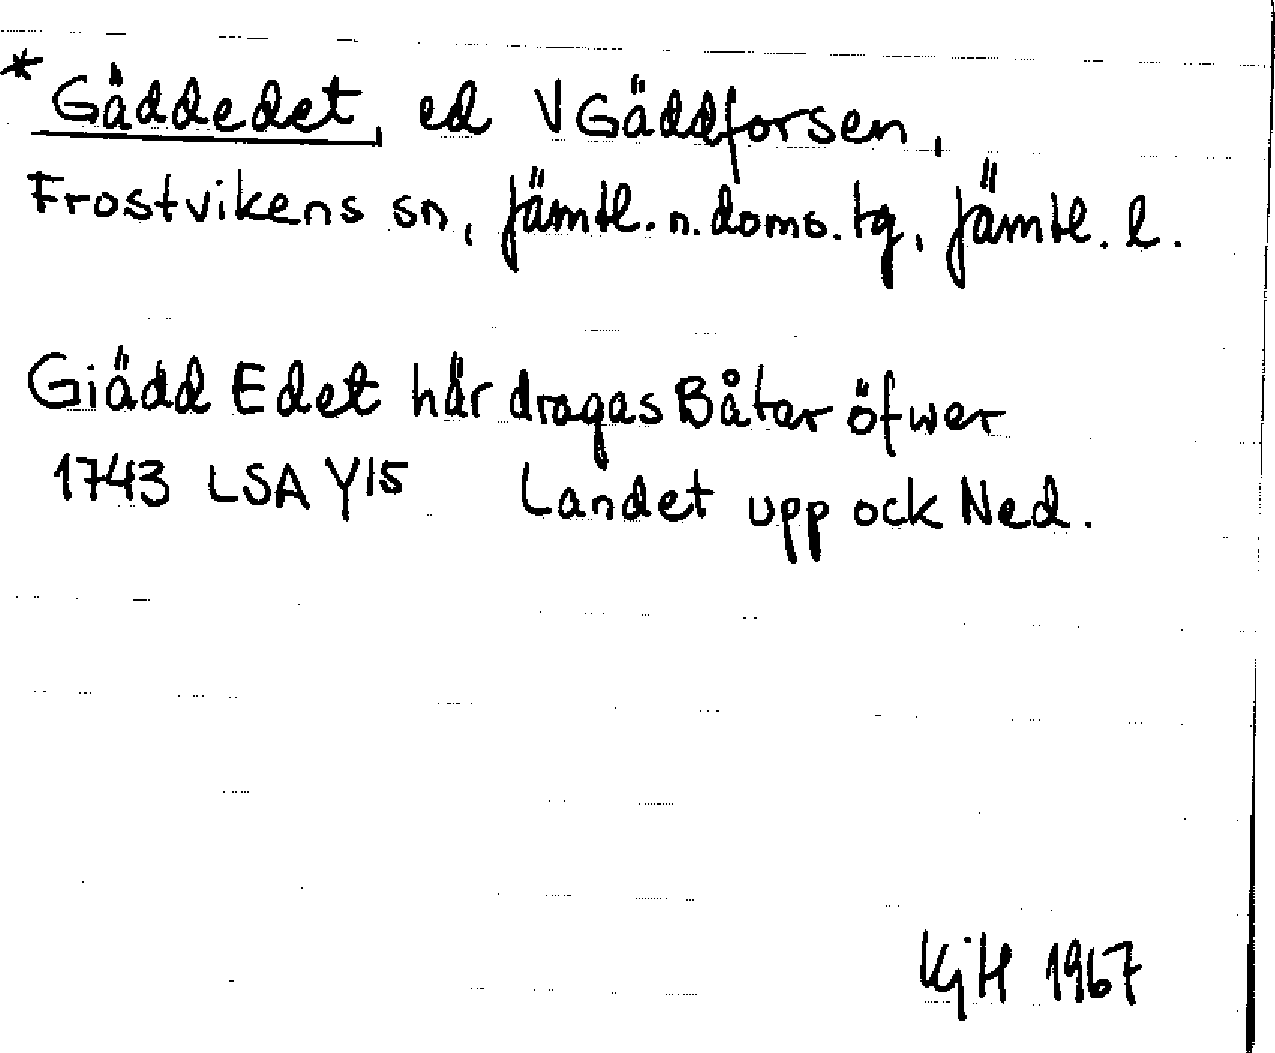 * Gäddedet, ed V Gäddforsen,
Frostvikens sn, Jämtl. n. doms. tg, Jämtl. l.
Giädd Edet här dragas Båtar öfwer
1743 LSA Y15 Landet upp ock Ned.
KjH 1967